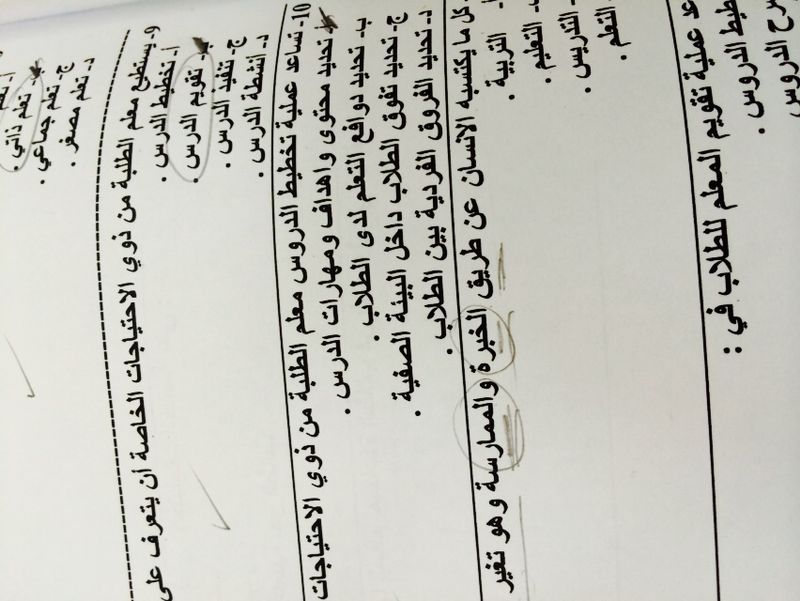 أ- تعلم
ب- تعلم ذاتي .
ج- تعلم جماعي .
د- تعلم مصغر .
9- يستطيع معلم الطلبة من ذوي الاحتياجات الخاصة ان يتعرف على
أ- تخطيط الدرس .
ب- تقويم الدرس .
ج- تنفيذ الدرس .
د- أنشطة الدرس .
10- تساعد عملية تخطيط الدروس معلم الطلبة من ذوي الاحتياجات
أ- تحديد محتوى واهداف ومهارات الدرس .
ب- تحديد دوافع التعلم لدى الطلاب .
ج- تحديد تفوق الطلاب داخل البيئة الصفية .
د- تحديد الفروق الفردية بين الطلاب .
كل ما يكتسبه الانسان عن طريق الخبرة والممارسة وهو تغير
أ- التربية .
ب- التعليم .
- التدريس .
- التعلم .
عملية تقويم المعلم للطلاب في :
الدروس .
الدروس